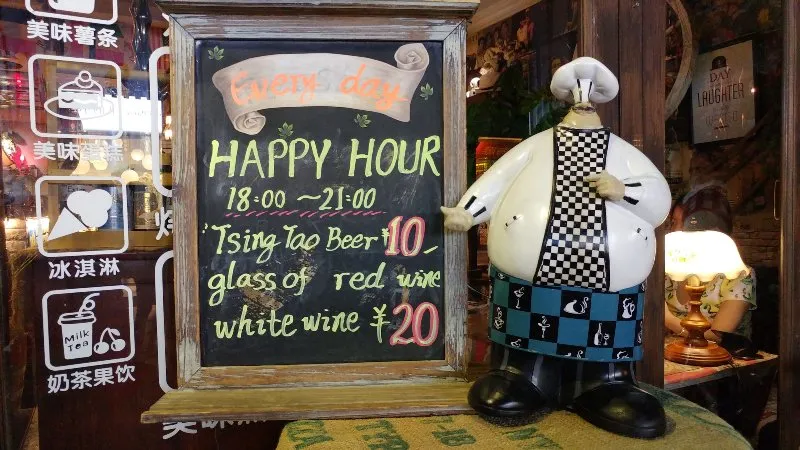 美味薯条
美味蛋糕
冰淇淋
Milk
Tea
奶茶果饮
Every day
HAPPY HOUR
18:00 ～21:00
Tsing Tao Beer ¥10
glass of red wine
white wine ¥20
DAY
LAUGHTER